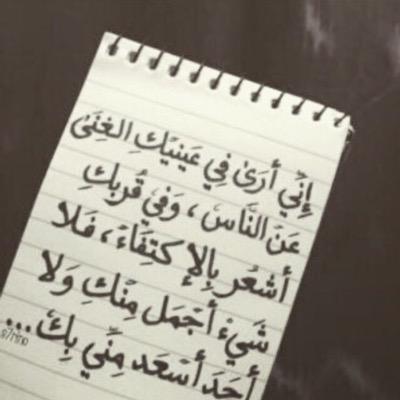 إِنِّي أَرَىٰ فِي عَينَيْكِ الغِنَىٰ
عَنْ النَّاسْ ، وَفِيْ قُربكِ
أشعُر بِالإكتِفَاءْ ، فَلا
شَيءْ أجْمَل مِنْكِ وَلا
أحَدَ أسْعَد مِنِّي بِكْ...